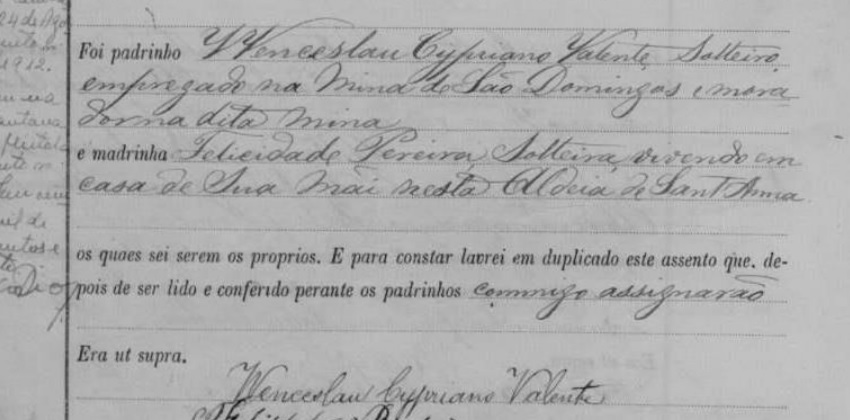 24 de Ago
1912.
Foi padrinho Wenceslau Cypriano Valente, Solteiro,
empregado na Mina de São Domingos e mora
dor na dita mina
e madrinha Felicidade Pereira, Solteira, vivendo em
casa de Sua Mãi nesta Aldeia de Sant'Anna
os quaes sei serem os proprios. E para constar lavrei em duplicado este assento que, de-
pois de ser lido e conferido perante os padrinhos commigo assignarão
Era ut supra.
Wenceslau Cypriano Valente